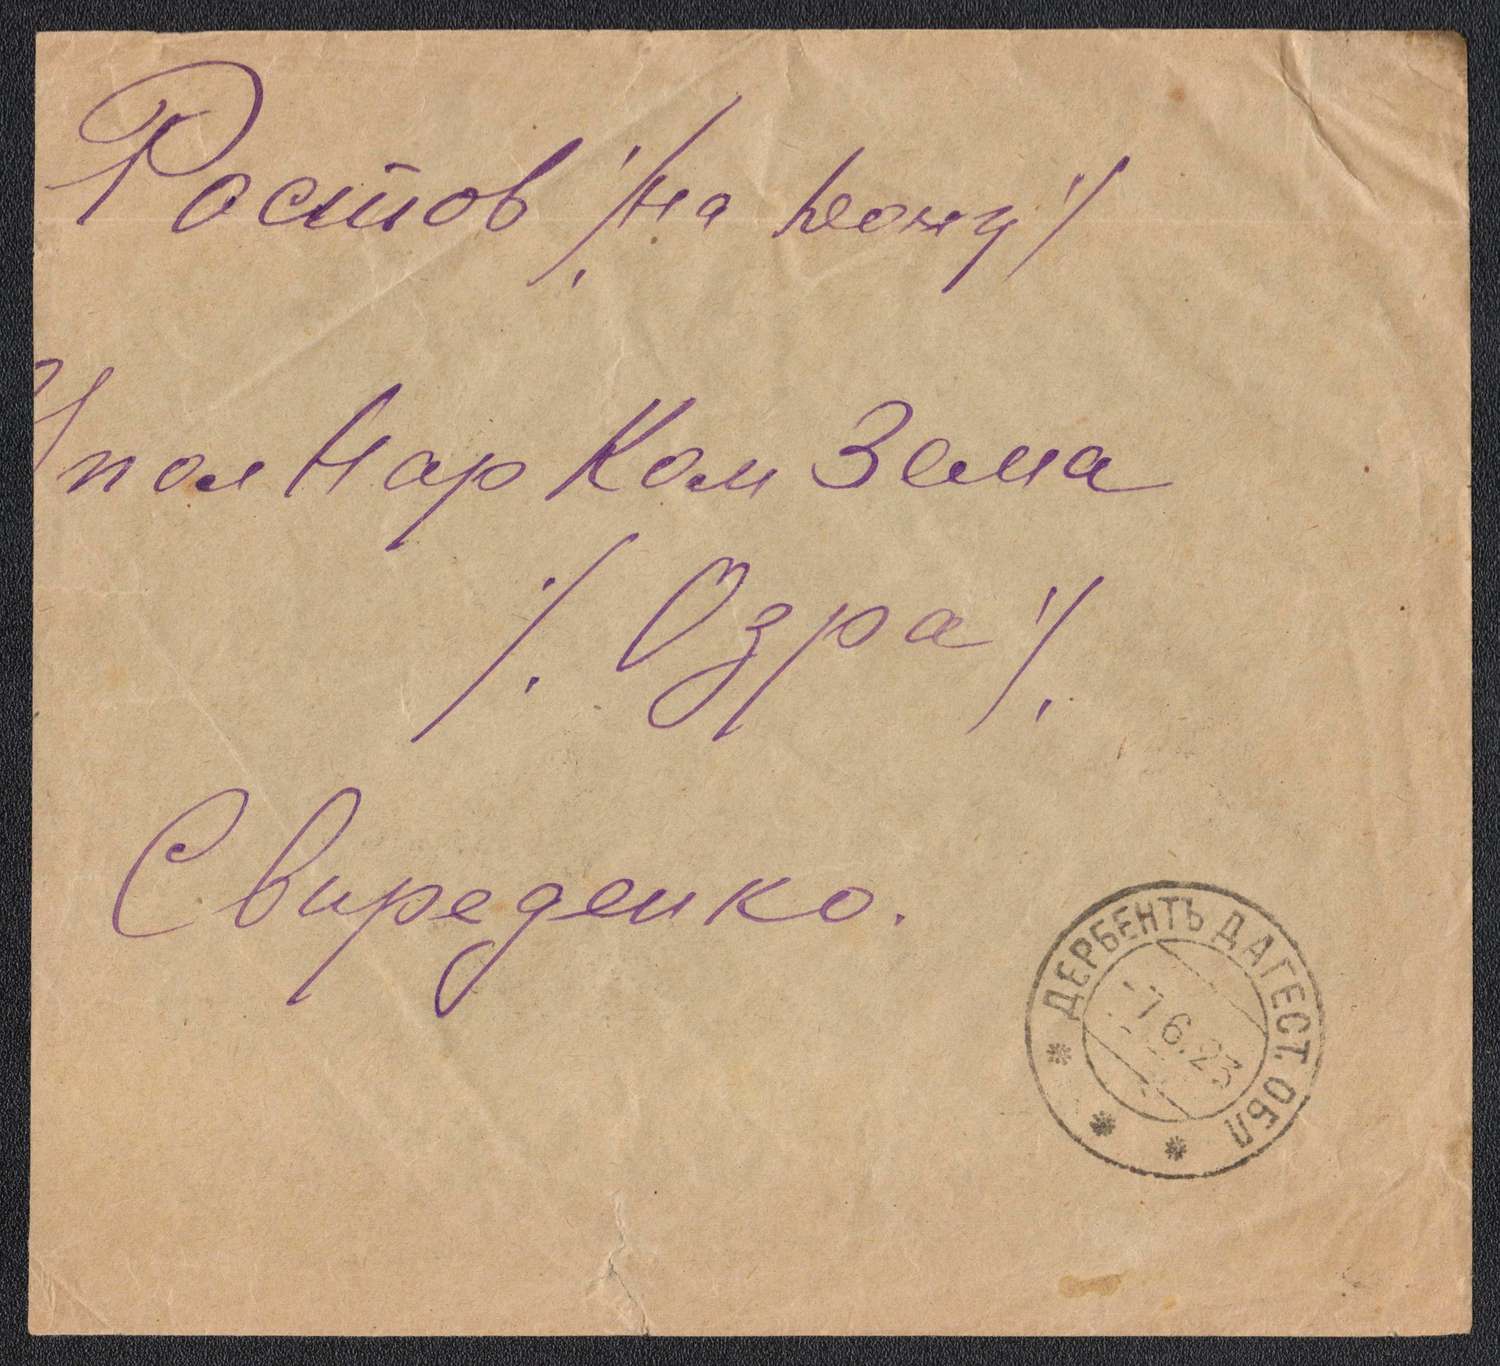 Ростов /на Дону/
УполНарКомЗема
/Озра/
Свиреденко.
ДЕРБЕНТЪ ДАГЕСТ. ОБЛ
-7 6.23